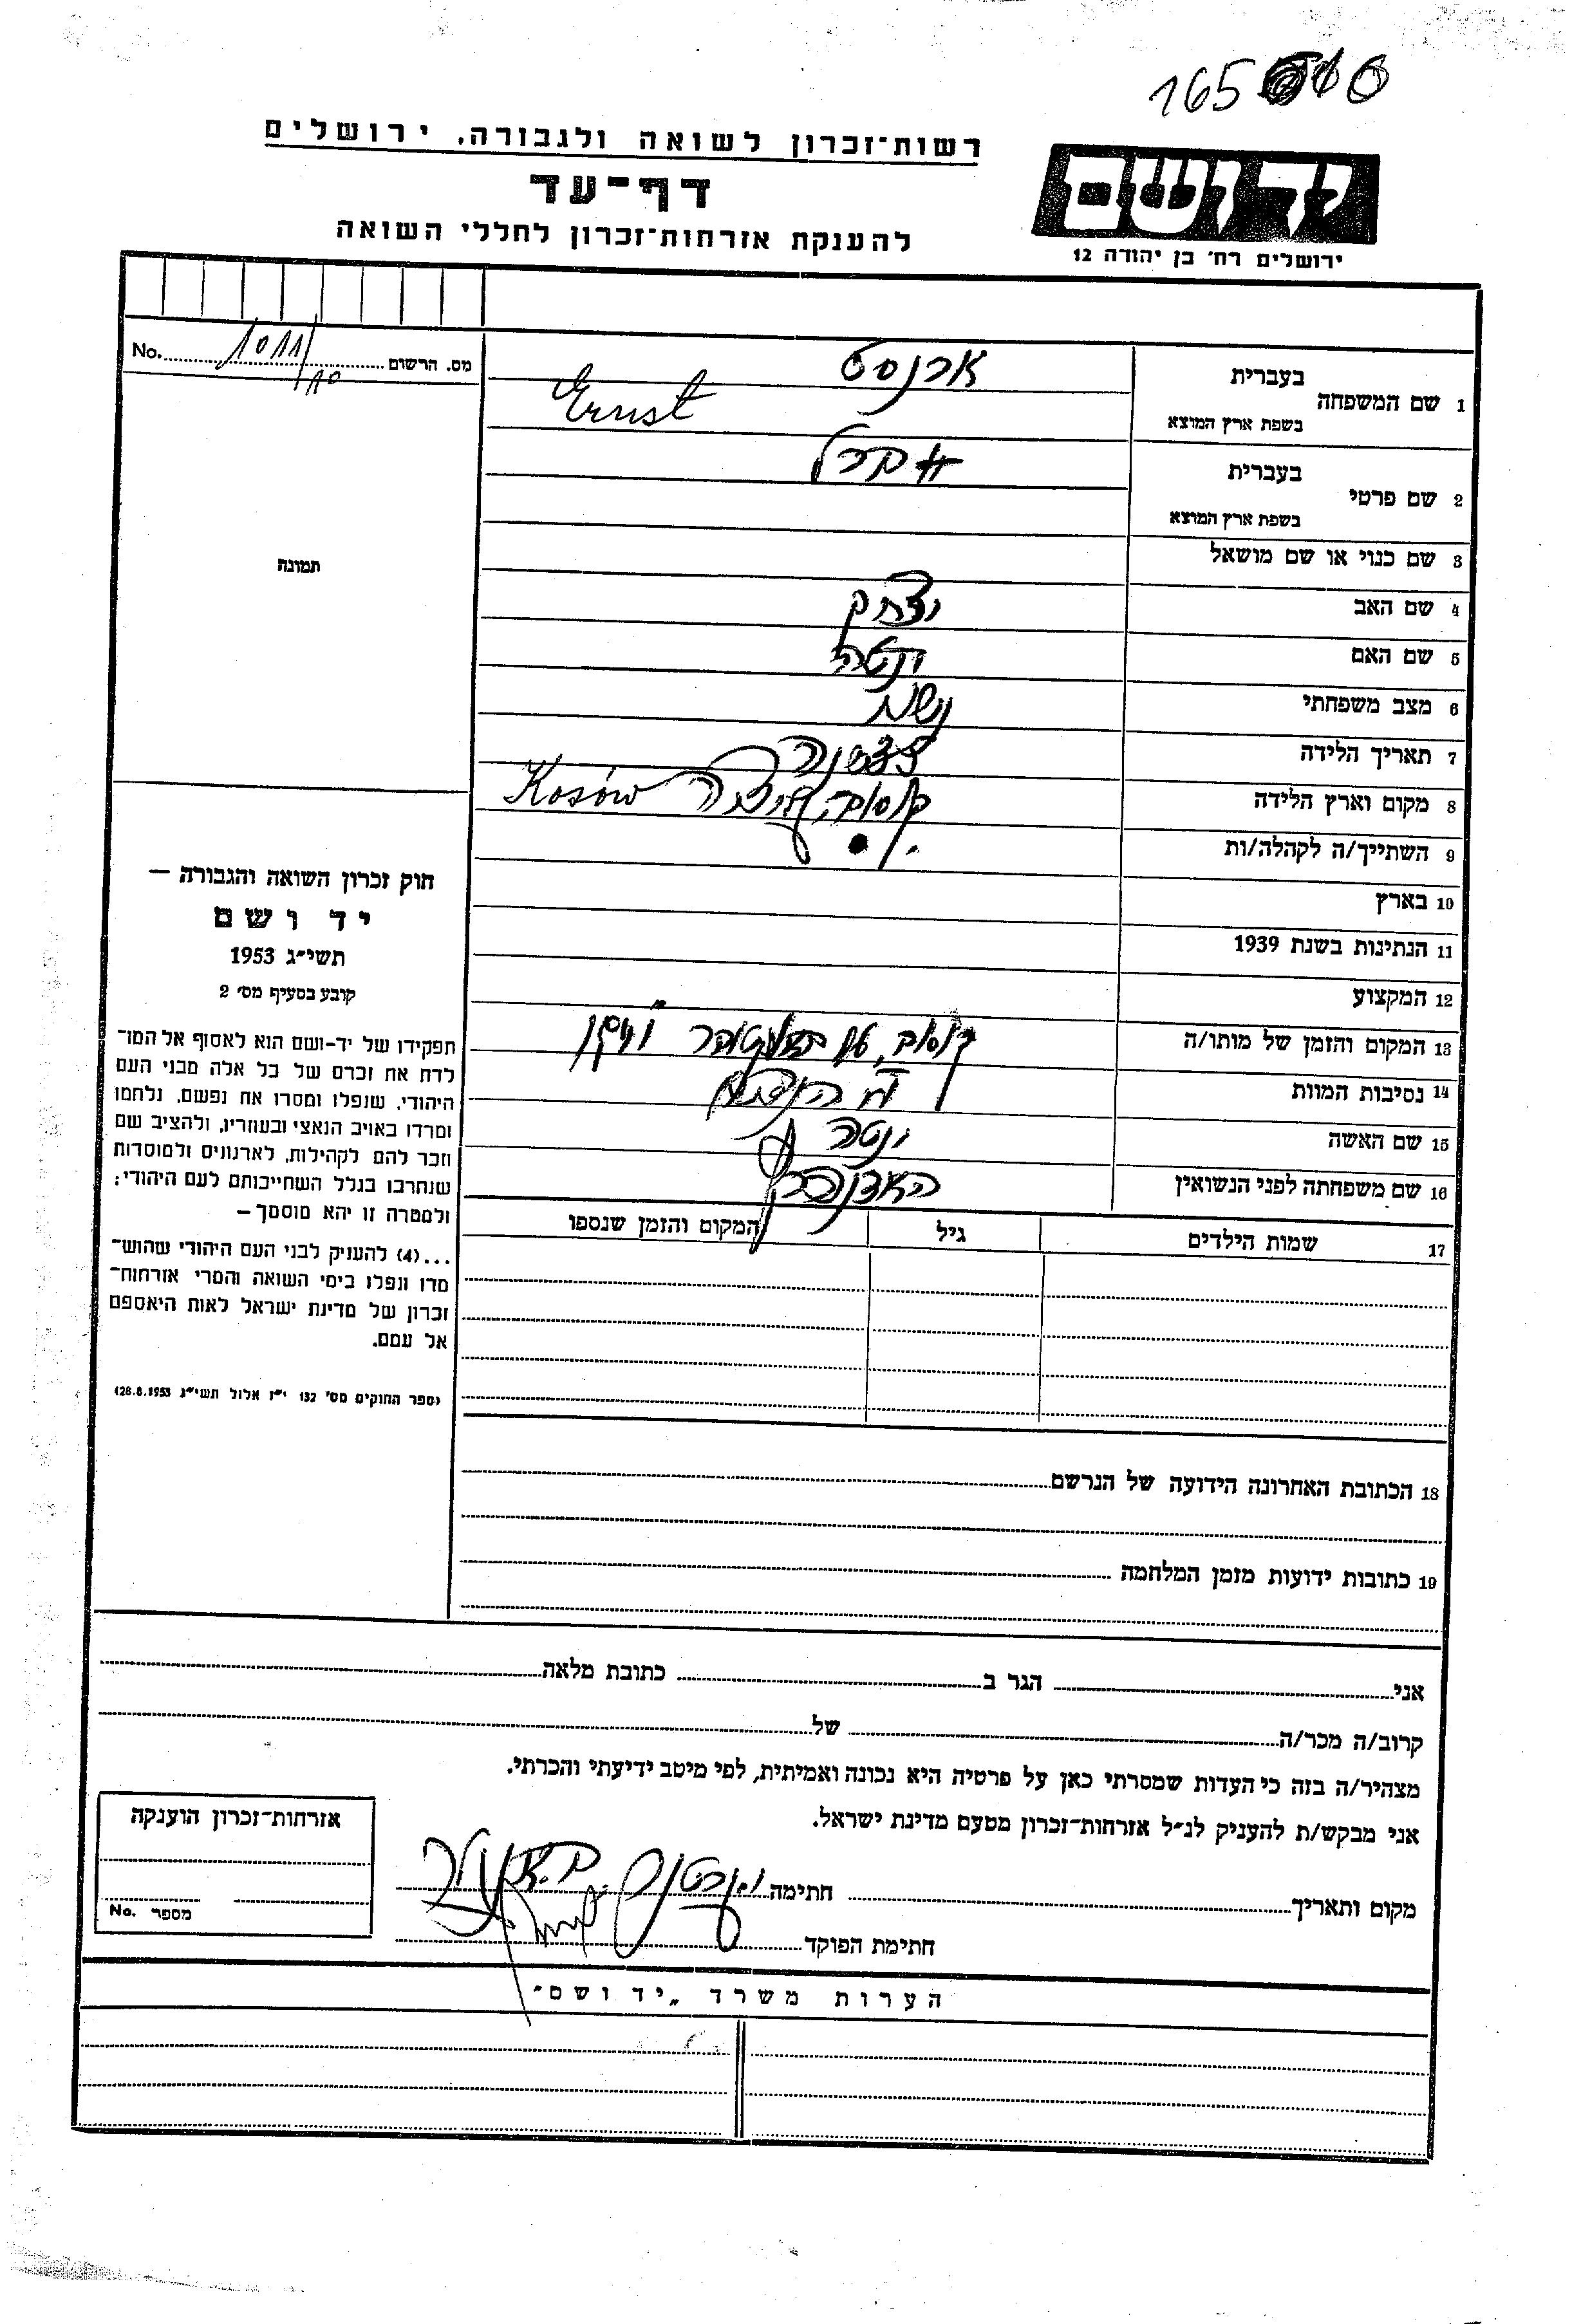 165
רשות־זכרון לשואה ולגבורה, ירושלים
דף־עד
להענקת אזרחות־זכרון לחללי השואה
יד ושם
ירושלים רח׳ בן יהודה 12
No. 1011/10 מס. הרשום
1 שם המשפחה
בעברית ארנסט
בשפת ארץ המוצא Ernst
2 שם פרטי
בעברית
בשפת ארץ המוצא
3 שם כנוי או שם מושאל
תמונה
4 שם האב יצחק
5 שם האם ינטה
6 מצב משפחתי נשוי
7 תאריך הלידה
8 מקום וארץ הלידה Kosów
9 השתייך/ה לקהלה/ות
10 בארץ
11 הנתינות בשנת 1939
12 המקצוע
13 המקום והזמן של מותו/ה קוסוב,
14 נסיבות המוות
15 שם האשה ינטה
16 שם משפחתה לפני הנשואין
17 שמות הילדים גיל המקום והזמן שנספו
חוק זכרון השואה והגבורה —
יד ושם
תשי״ג 1953
קובע בסעיף מס׳ 2
תפקידו של יד-ושם הוא לאסוף אל המו־
לדת את זכרם של כל אלה מבני העם
היהודי, שנפלו ומסרו את נפשם, נלחמו
ומרדו באויב הנאצי ובעוזריו, ולהציב שם
וזכר להם לקהילות, לארגונים ולמוסדות
שנחרבו בגלל השתייכותם לעם היהודי;
ולמטרה זו יהא מוסמך —
...(4) להענית לבני העם היהודי שהוש־
מדו ונפלו בימי השואה והמרי אזרחות־
זכרון של מדינת ישראל לאות היאספם
אל עמם.
(ספר החוקים מס׳ 132 י״ז אלול תשי״ג 28.8.1953)
18 הכתובת האחרונה הידועה של הנרשם
19 כתובות ידועות מזמן המלחמה
אני הגר ב כתובת מלאה
קרוב/ה מכר/ה של
מצהיר/ה בזה כי העדות שמסרתי כאן על פרטיה היא נכונה ואמיתית, לפי מיטב ידיעתי והכרתי.
אני מבקש/ת להעניק לנ״ל אזרחות־זכרון מטעם מדינת ישראל.
מקום ותאריך חתימה
חתימת הפוקד
אזרחות־זכרון הוענקה
No. מספר
הערות משרד „יד ושם״